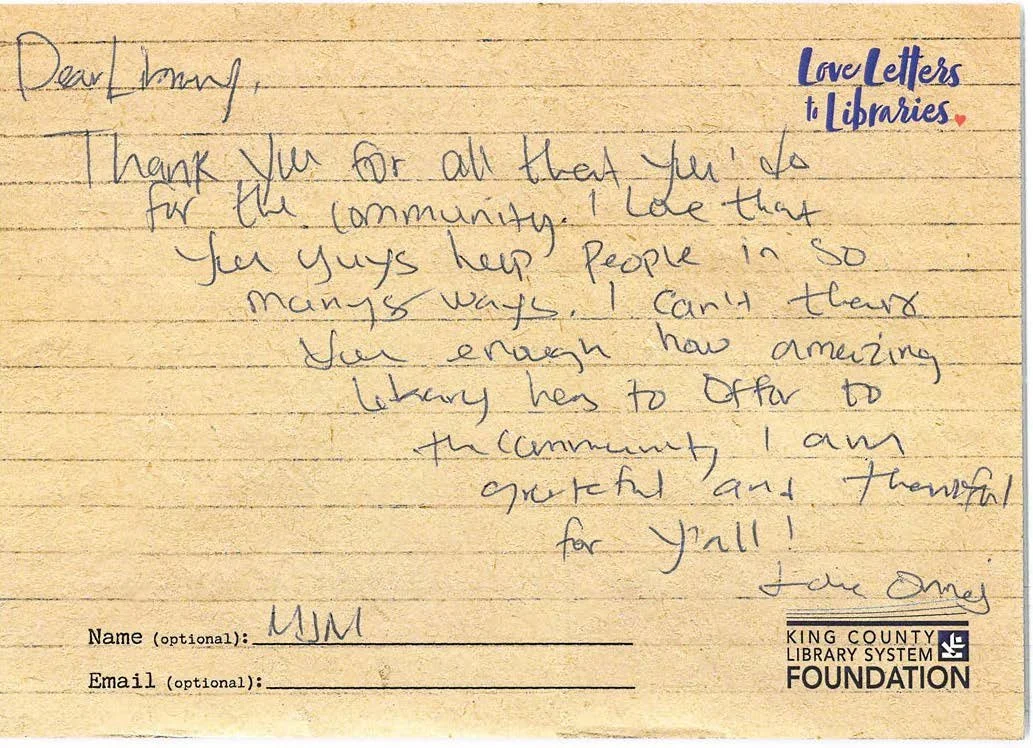 Dear Library,
Love Letters
to Libraries
Thank you for all that you do
for the community. I Love that
you guys help people in so
many ways. I can't thank
you enough how amazing
library has to offer to
the community I am
grateful and thankful
for y'all!
Name (optional): MJM
Email (optional):
KING COUNTY
LIBRARY SYSTEM
FOUNDATION